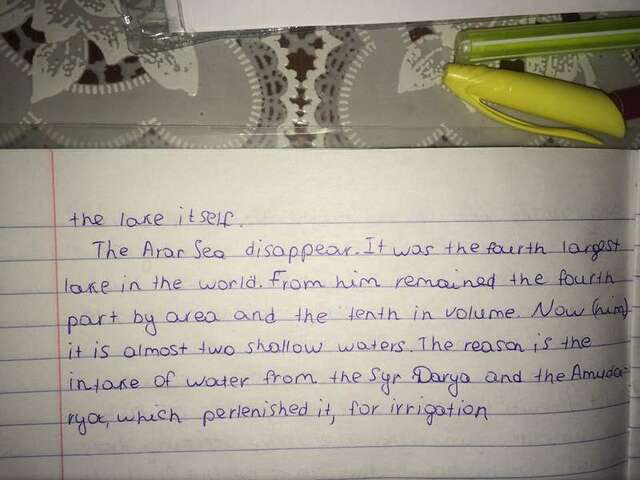 the lake itself.
The Arar Sea disappear. It was the fourth largest
lake in the world. From him remained the fourth
part by area and the tenth in volume. Now (him)
it is almost two shallow waters. The reason is the
intake of water from the Syr Darya and the Amuda-
rya, which perlenished it, for irrigation